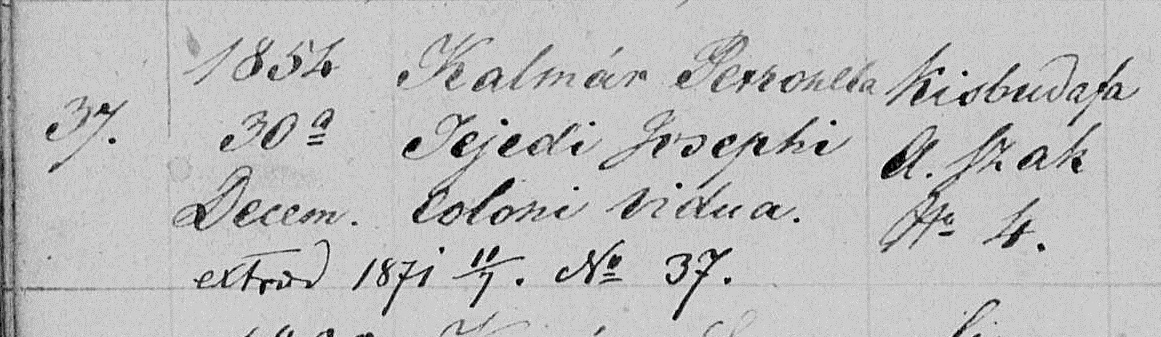 37.
1854
30ª
Decem.
Kalmár Perronella
Jejedi Josephi
Coloni vidua.
Kisbudafa
A. Szak
No 4.
extrad 1871 11/7. No 37.